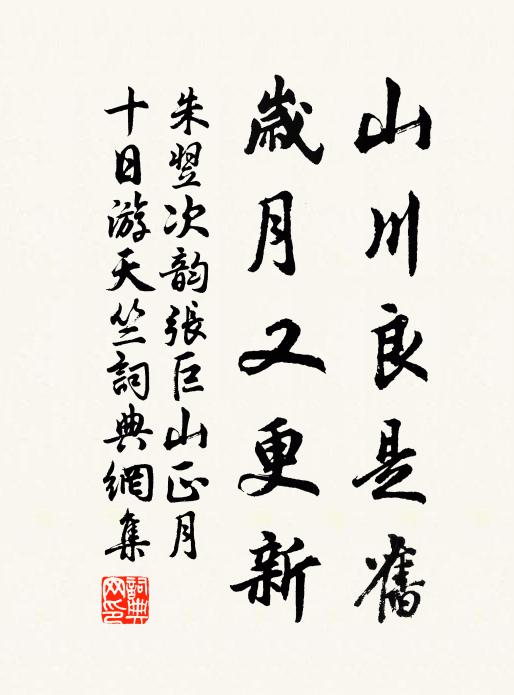 山川良是舊
歲月又更新
朱翌次韵張巨山正月
十日游天竺詞典網集
詞典
网印